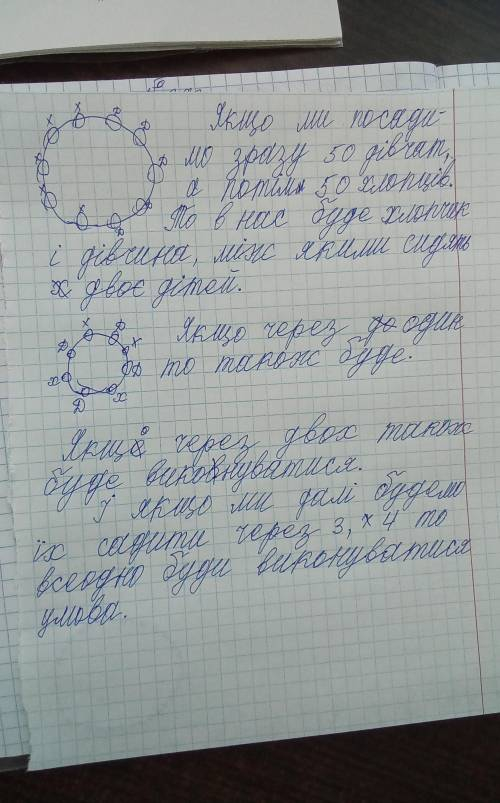 Якщо ми посади-
мо зразу 50 дівчат,
а потім 50 хлопців.
То в нас буде хлопчик
і дівчина, між якими сидять
двоє дітей.
Якщо через один
то також буде.
Якщо через двох також
буде виконуватися.
І якщо ми далі будемо
їх садити через 3, 4 то
всеодно буди виконуватися
умова.